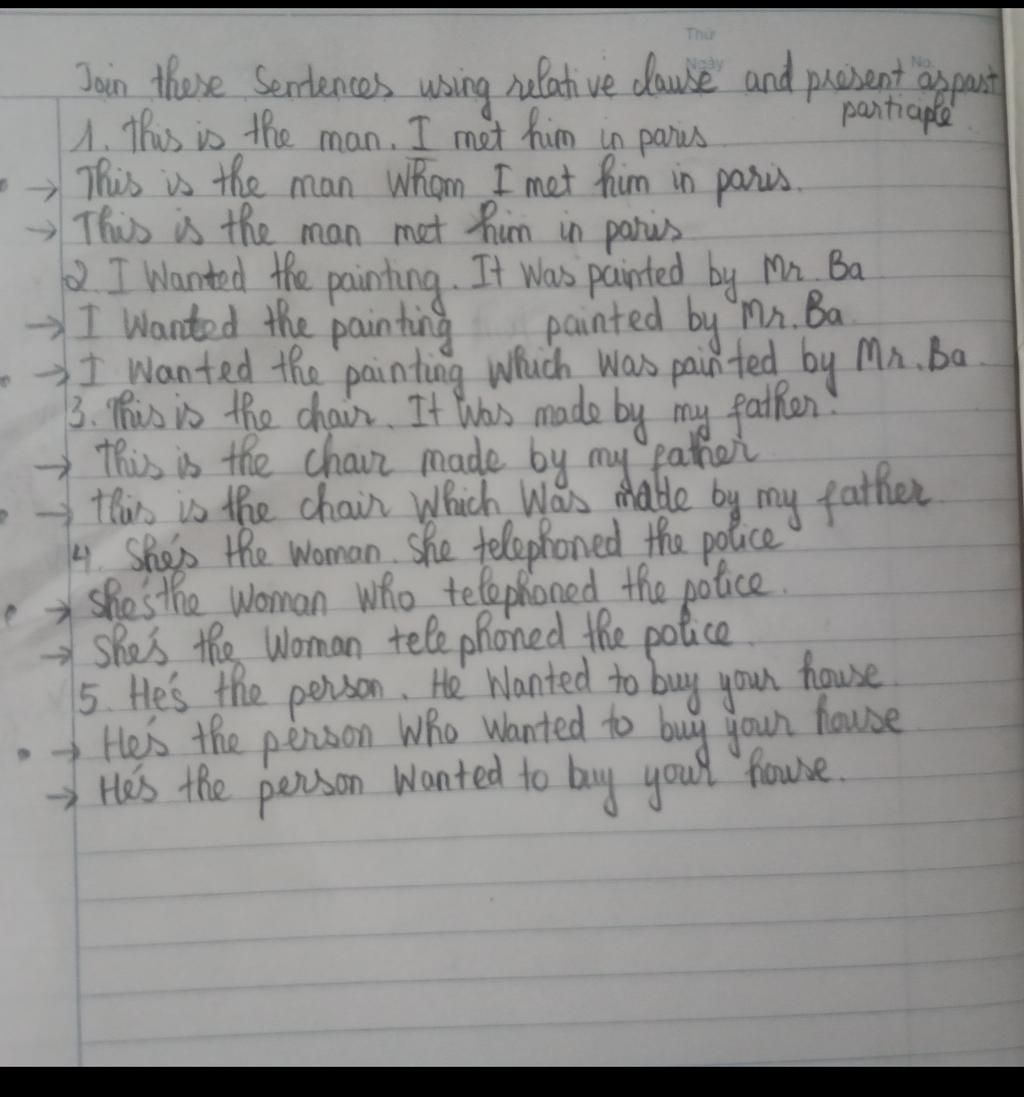 Thứ
Ngày No.
Join these Sentences using relative clause and present as past
participle
1. This is the man. I met him in paris
→ This is the man Whom I met him in paris.
→ This is the man met him in paris
2. I Wanted the painting. It Was painted by Mr. Ba
→ I Wanted the painting painted by Mr. Ba
→ I Wanted the painting Which Was painted by Mr. Ba
3. This is the chair. It Was made by my father.
→ This is the chair made by my father
→ this is the chair Which Was made by my father
4. She's the Woman. She telephoned the police
→ She's the Woman Who telephoned the police.
→ She's the Woman telephoned the police.
5. He's the person. He Wanted to buy your house
→ He's the person Who Wanted to buy your house
→ He's the person Wanted to buy your house.